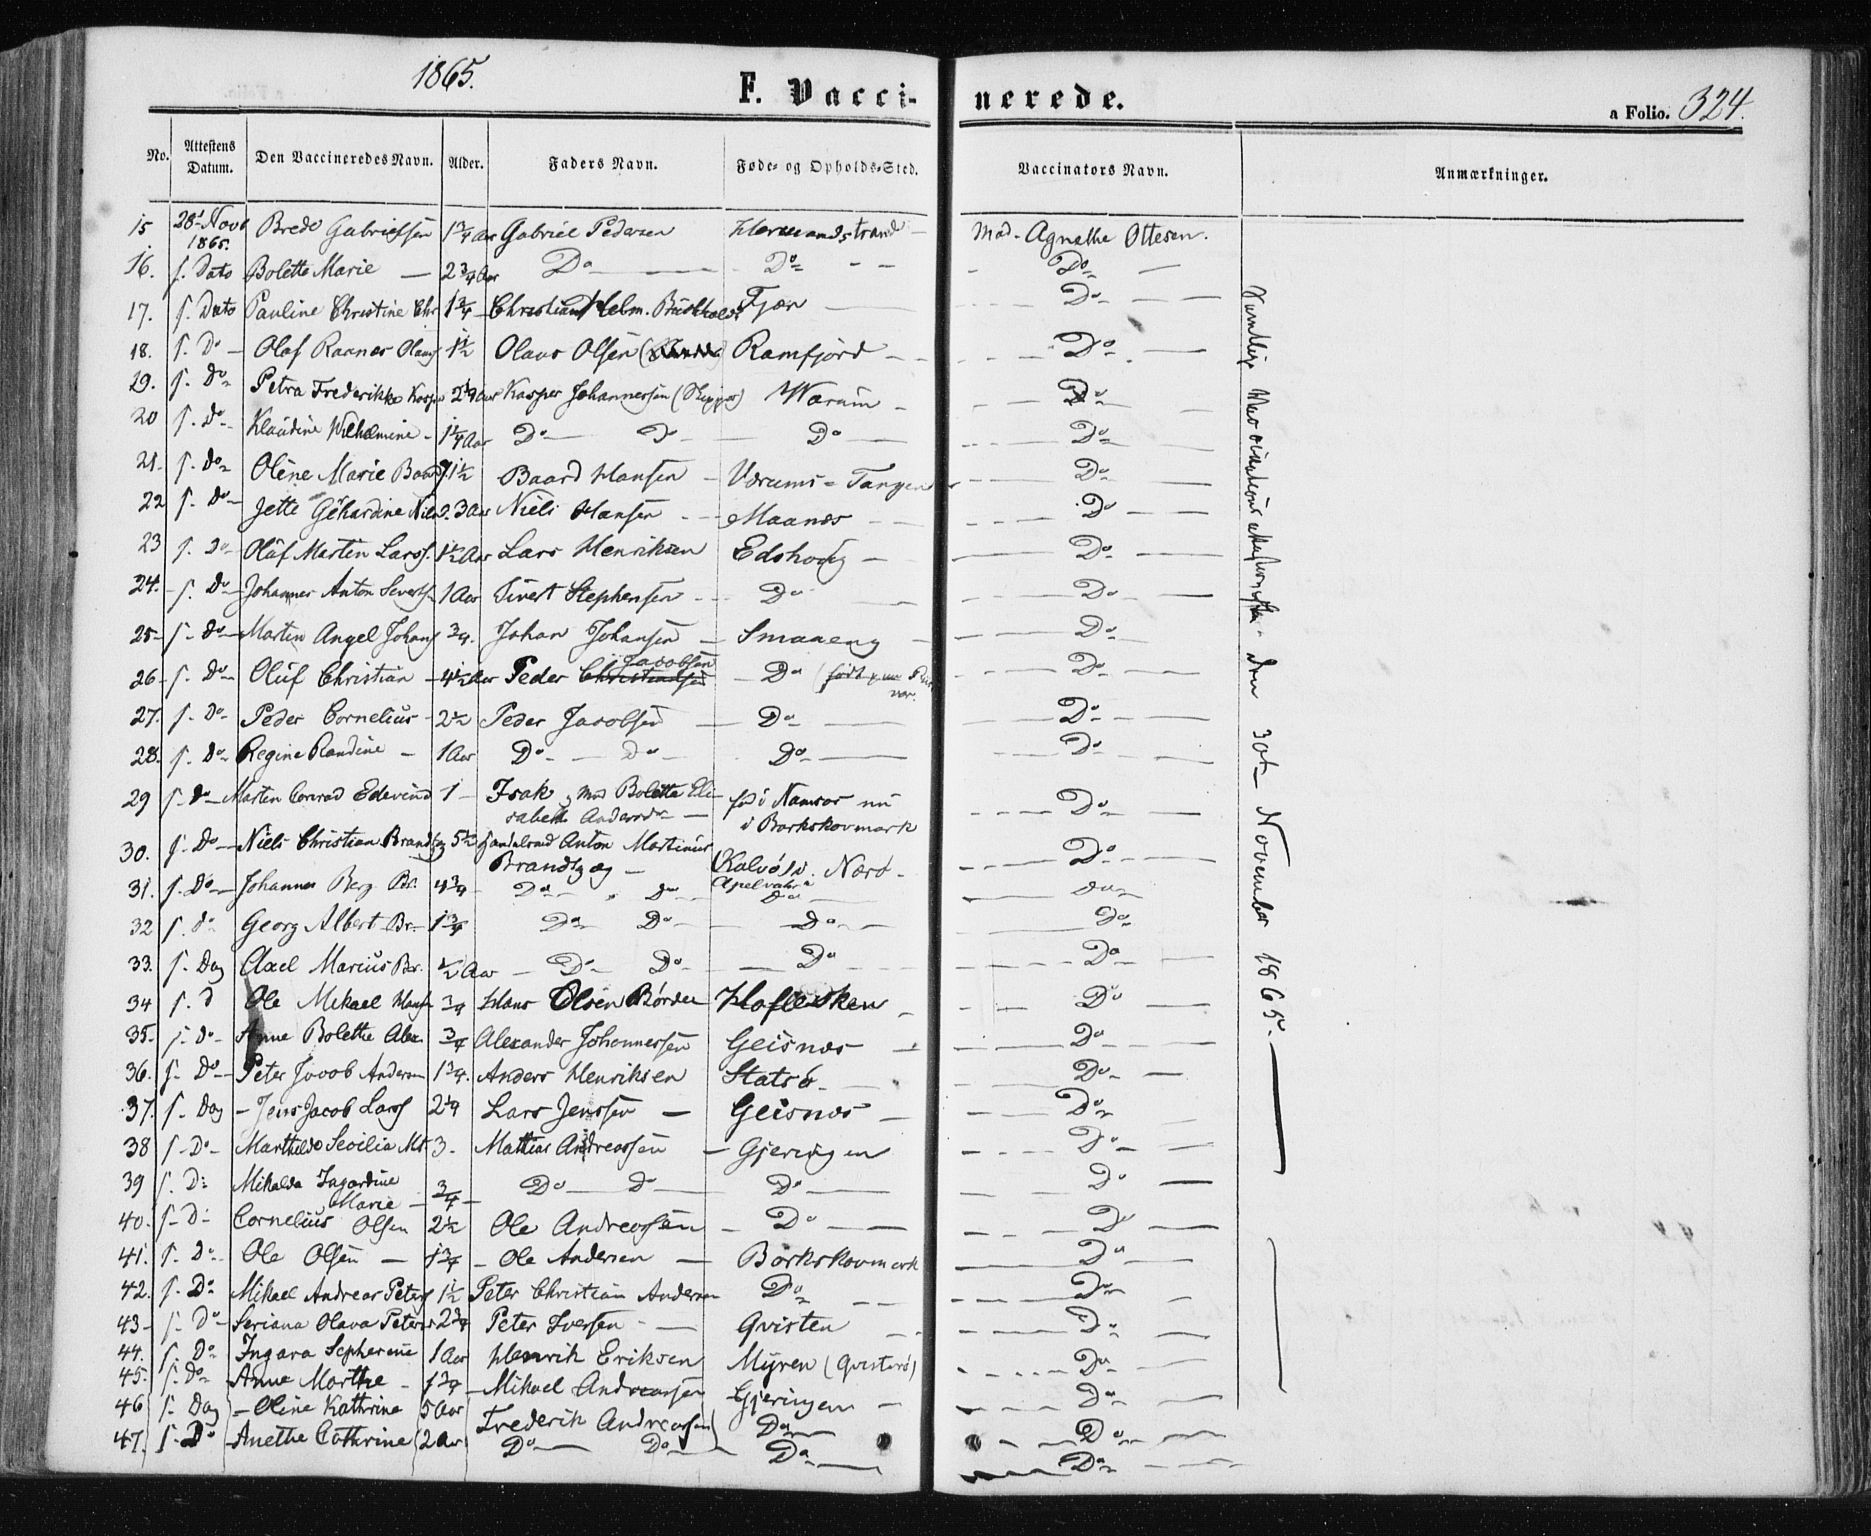 1865.
F. Vacci-
nerede.
a Folio. 324.
No. Attestens Datum. Den Vaccineredes Navn. Alder. Faders Navn. Føde- og Opholds-Sted. Vaccinators Navn. Anmærkninger.
15 28 Novb 1865. Brede Gabrielsen 1 3/4 Aar Gabriel Pedersen Hermandstrand Mad. Agnethe Ottesen.
16. s. Dato Bolette Marie 2 3/4 Aar Do Do Do
17. s. Dato Pauline Christine Chr 1 3/4 Christian Helm. Buchholdt Fjær Do
18. s. Do Olaf Ragnar Olaus 1 1/2 Olaus Olsen Ramfjord Do
19. s. Do Petra Frederikke Kasp 2 1/4 Aar Kasper Johannessen (Skipper) Wærum Do
20 s. Do Klaudine Wilhelmine 1 1/4 Aar Do Do Do Do
21. s. Do Oline Marie Baard 1 1/2 Baard Hansen Værums-Tangen Do
22 s. Do Jette Gerhardine Niels. 3 Aar Niels Hansen Maanes Do
23 s. Do Oluf Martin Larss. 1 1/2 Aar Lars Henriksen Edshoug Do
24. s. Do Johannes Anton Severts 1 Aar Sivert Stephensen Do Do
25 s. Do Martin Angel Johans 3/4. Johan Johansen Smaaeng Do
26 s. Do Oluf Christian 4 1/2 Aar Peder Christiansen Jacobsen Do Do
27. s. Do Peder Cornelius 2 1/2 Peder Jacobsen Do Do
28. s. Do Regine Randine 1 Aar Do Do Do Do
29 s. Do Marten Conrad Edevind 1 Isak, Mod Bolette Eli-
sabeth Andersdr fød i Namsos nu
i Barkskovmark Do
30. s. Do Niels Christian Brandtzæg 5 1/2 Handelsmd Anton Martinus
Brandtzæg Kalvø i Nærø Do
31. s. Do Johannes Berg Br. 4 3/4 Do Do Do Do
32 s. Do Georg Albert Br. 1 3/4 Do Do Do Do
33. s. Dag Axel Marius Br. 1/2 Aar Do Do Do Do
34 s. D Ole Mekael Hans 3/4 Hans Olsen Børder Hoflesken Do
35. s. Do Anne Bolette Alex. 3/4 Alexander Johannessen Geisnæs Do
36. s. Do Peter Jacob Andersen 1 3/4. Anders Henriksen Statsø Do
37. s. Dag Jens Jacob Larss 2 1/4 Lars Jenssen Geisnæs Do
38 s. Do Marthilde Secilia Mt. 3. Mattias Andreassen Gjeringen Do
39 s. D: Mikalda Ingardine
Marie 3/4 Do Do Do Do
40. s. D: Cornelius Olsen 2 1/2 Ole Andreassen Do Do
41. s. Do Ole Olsen 1 3/4 Ole Andersen Barkskovmark Do
42. s. Do Mikael Andreas Peters 1 1/2 Peter Christian Andersen Do Do
43 s. Do Seriana Olava Peters 2 3/4 Peter Iversen Qvisten Do
44. s. Do Ingara Sepherine 1 Aar Henrik Eriksen Myren (Qvistens) Do
45. s. Do Anne Marthe 1 3/4 Mikael Andreassen Gjeringen Do
46 s. Dag Oline Kathrine 5 Aar Frederik Andreassen Do Do
47. s. Do Anethe Cathrine 2 Aar Do Do Do Do
Samtlige Vaccinationsattester den 30te November 1865.